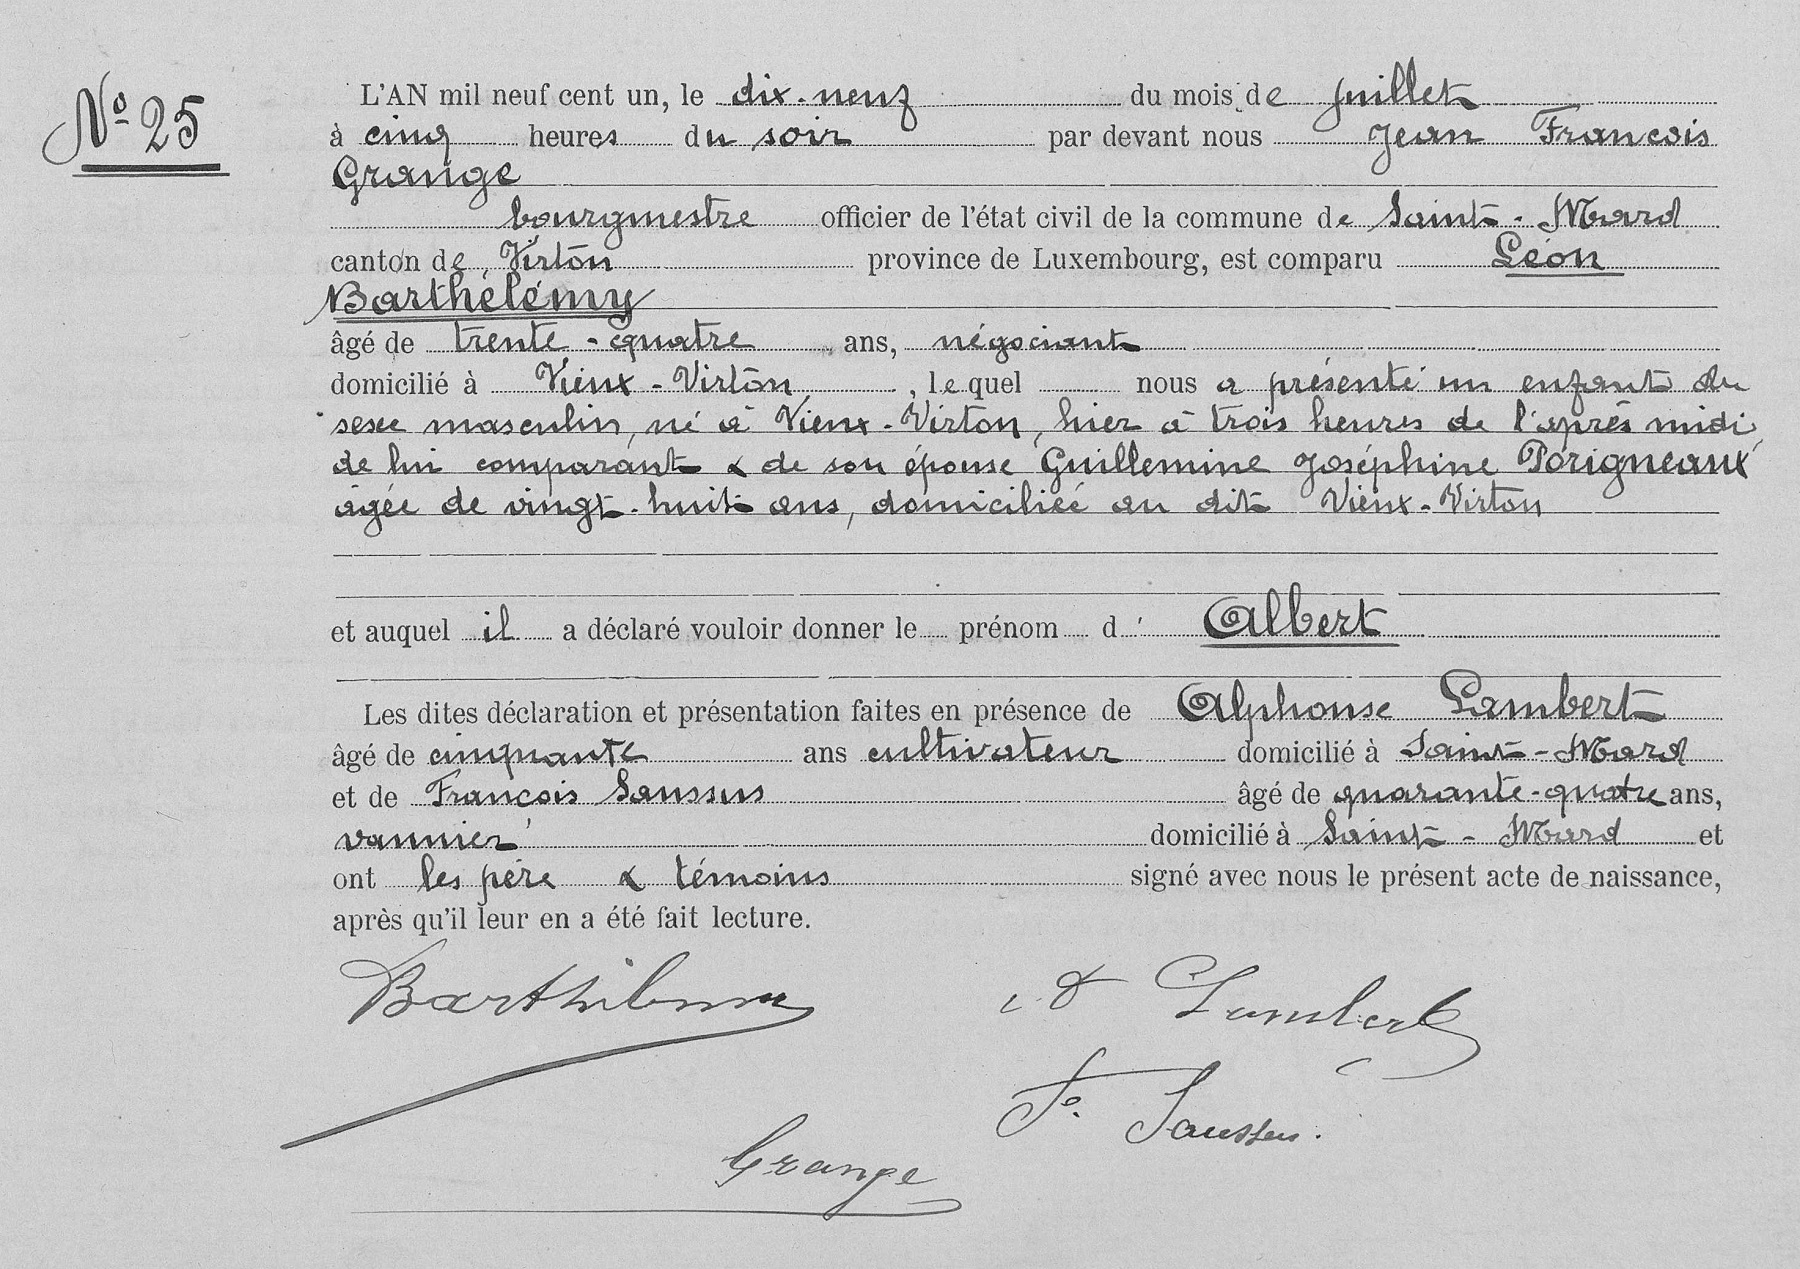 Nº 25
L'AN mil neuf cent un, le dix-neuf du mois de juillet
à cinq heures du soir par devant nous Jean François
Grange
bourgmestre officier de l'état civil de la commune de Saint-Mard
canton de Virton province de Luxembourg, est comparu Léon
Barthélémy
âgé de trente-quatre ans, négociant
domicilié à Vieux-Virton, lequel nous a présenté un enfant du
sexe masculin, né à Vieux-Virton, hier à trois heures de l'après midi,
de lui comparant & de son épouse Guillemine Joséphine Porigneaux
agée de vingt-huit ans, domiciliée au dit Vieux-Virton
et auquel il a déclaré vouloir donner le prénom d' Albert
Les dites déclaration et présentation faites en présence de Alphonse Lambert
âgé de cinquante ans cultivateur domicilié à Saint-Mard
et de François Saussus âgé de quarante-quatre ans,
vannier domicilié à Saint-Mard et
ont les père & témoins signé avec nous le présent acte de naissance,
après qu'il leur en a été fait lecture.
Barthélemy Lambert
Saussus.
Grange